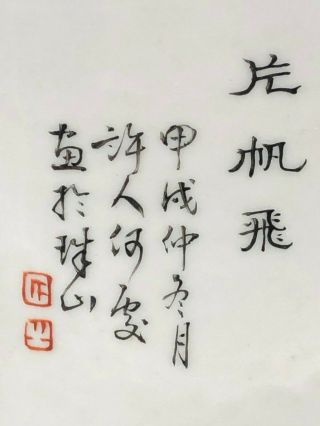 片帆飛
甲戌仲冬月
許人何處
畫於珠山